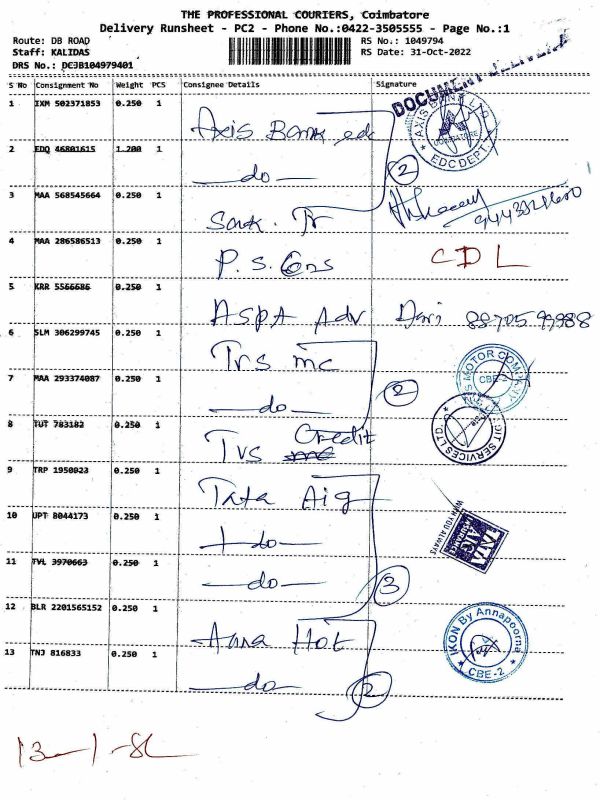 THE PROFESSIONAL COURIERS, Coimbatore
Delivery Runsheet - PC2 - Phone No.:0422-3505555 - Page No.:1
Route: DB ROAD RS No.: 1049794
Staff: KALIDAS RS Date: 31-Oct-2022
DRS No.: DC3B104979401
S No Consignment No Weight PCS Consignee Details Signature
DOCUMENT DELIVERY
1 IXM 502371853 0.250 1 Axis Bank edc
AXIS BANK LTD. COIMBATORE EDC DEPT.
2 EDQ 46801615 1.200 1 —do— 2
3 MAA 568545664 0.250 1
4 MAA 286586513 0.250 1 P.S. Cons CDL
5 KRR 5566686 0.250 1 ASPA Adv 88705 99988
6 SLM 306299745 0.250 1 Tvs mc
MOTOR COMPANY CBE-2
7 MAA 293374087 0.250 1 —do— 2
8 TUT 783182 0.250 1 Tvs Credit
CREDIT SERVICES LTD.
9 TRP 1950023 0.250 1 Tata Aig
10 UPT 8044173 0.250 1 —do—
TATA AIG WITH YOU ALWAYS
11 TVL 3970663 0.250 1 —do— 3
12 BLR 2201565152 0.250 1 Anna Hot
IKON By Annapoorna CBE-2
13 TNJ 816833 0.250 1 —do— 2